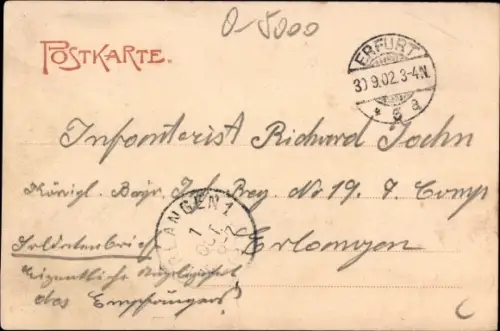 0-5000
POSTKARTE.
ERFURT
30.9.02.3-4N.
* 6 a
Infanterist Richard Jochn
Königl. Bayr. Inf. Reg. No 19. 7. Comp
ERLANGEN 1
1
OCT.
Soldatenbrief
Erlangen
Eigentliche Angelegenheit
des Empfängers